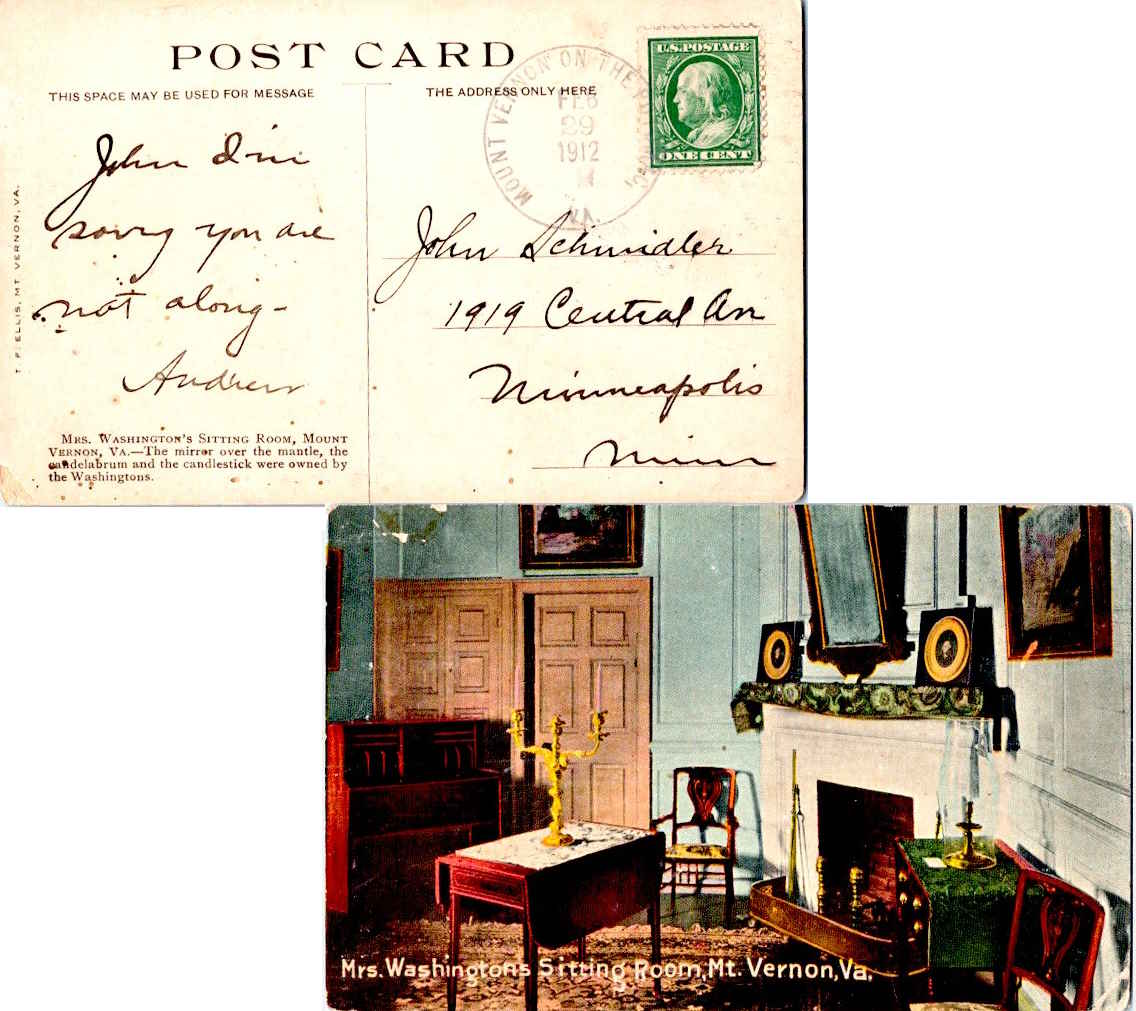 POST CARD
THIS SPACE MAY BE USED FOR MESSAGE
THE ADDRESS ONLY HERE
MOUNT VERNON ON THE
FEB
29
1912
VA.
U.S. POSTAGE
ONE CENT
John I'm
sorry you are
not along-
Andrew
John Schmidler
1919 Central Av
Minneapolis
Minn
T. P. ELLIS, MT. VERNON, VA.
MRS. WASHINGTON'S SITTING ROOM, MOUNT
VERNON, VA.—The mirror over the mantle, the
candelabrum and the candlestick were owned by
the Washingtons.
Mrs. Washingtons Sitting Room, Mt. Vernon, Va.